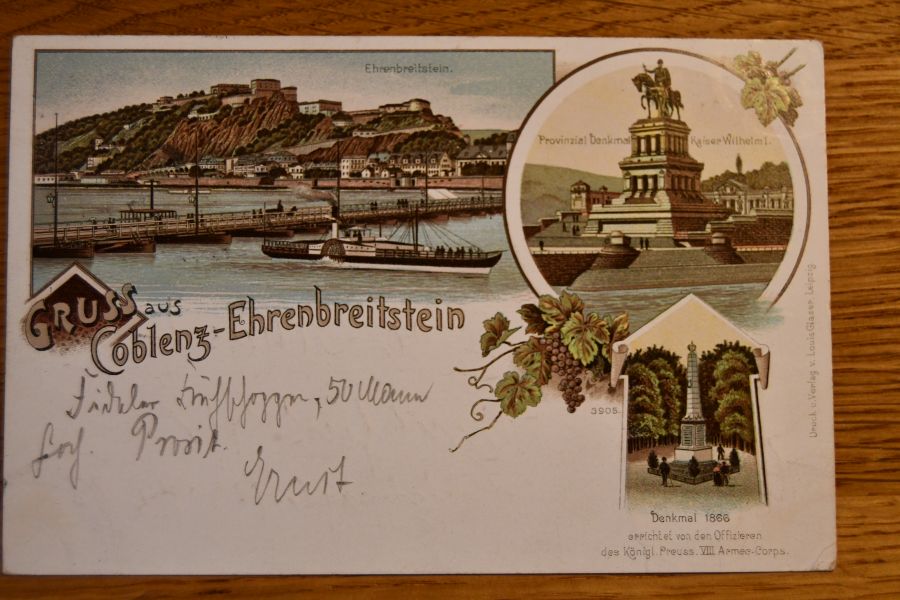 Ehrenbreitstein.
Provinzial Denkmal Kaiser Wilhelm I.
GRUSS aus
Coblenz-Ehrenbreitstein
Fideler Frühschoppen, 50 Mann
hoch. Prosit.
Ernst.
3905.
Denkmal 1866
errichtet von den Offizieren
des Königl. Preuss. VIII. Armee-Corps.
Druck u. Verlag v. Louis Glaser, Leipzig.